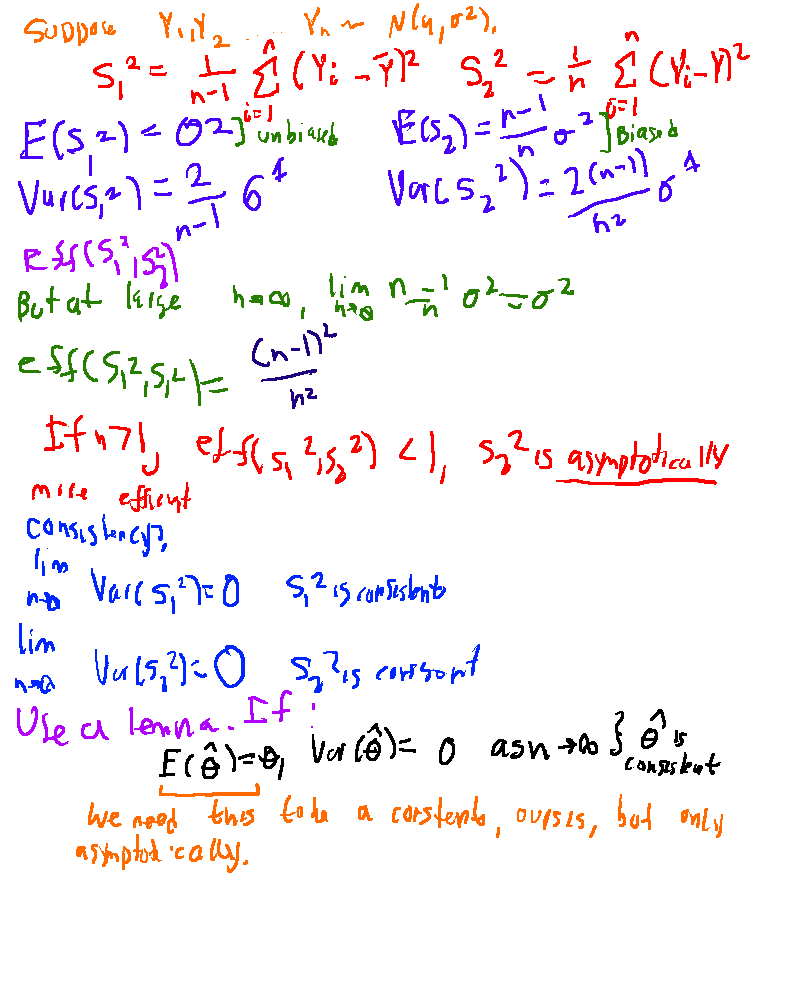 Suppose Y₁, Y₂ ... Yₙ ~ N(μ, σ²).
S₁² = 1/(n-1) Σᵢ₌₁ⁿ (Yᵢ - Ȳ)² S₂² = 1/n Σᵢ₌₁ⁿ (Yᵢ - Ȳ)²
E(S₁²) = σ² ] unbiased E(S₂) = (n-1)/n σ² ] Biased
Var(S₁²) = 2/(n-1) σ⁴ Var(S₂²) = 2(n-1)/n² σ⁴
Eff(S₁², S₂²)
But at large n→∞, lim n→∞ (n-1)/n σ² = σ²
eff(S₁², S₁²) = (n-1)²/n²
If n>1, eff(S₁², S₂²) < 1, S₂² is asymptotically
more efficient
consistency?
lim n→∞ Var(S₁²) = 0 S₁² is consistent
lim n→∞ Var(S₂²) = 0 S₂² is consistent
Use a lemma. If :
E(θ̂) = θ, Var(θ̂) = 0 as n→∞ } θ̂ is consistent
We need this to be a constant, ours is, but only
asymptotically.